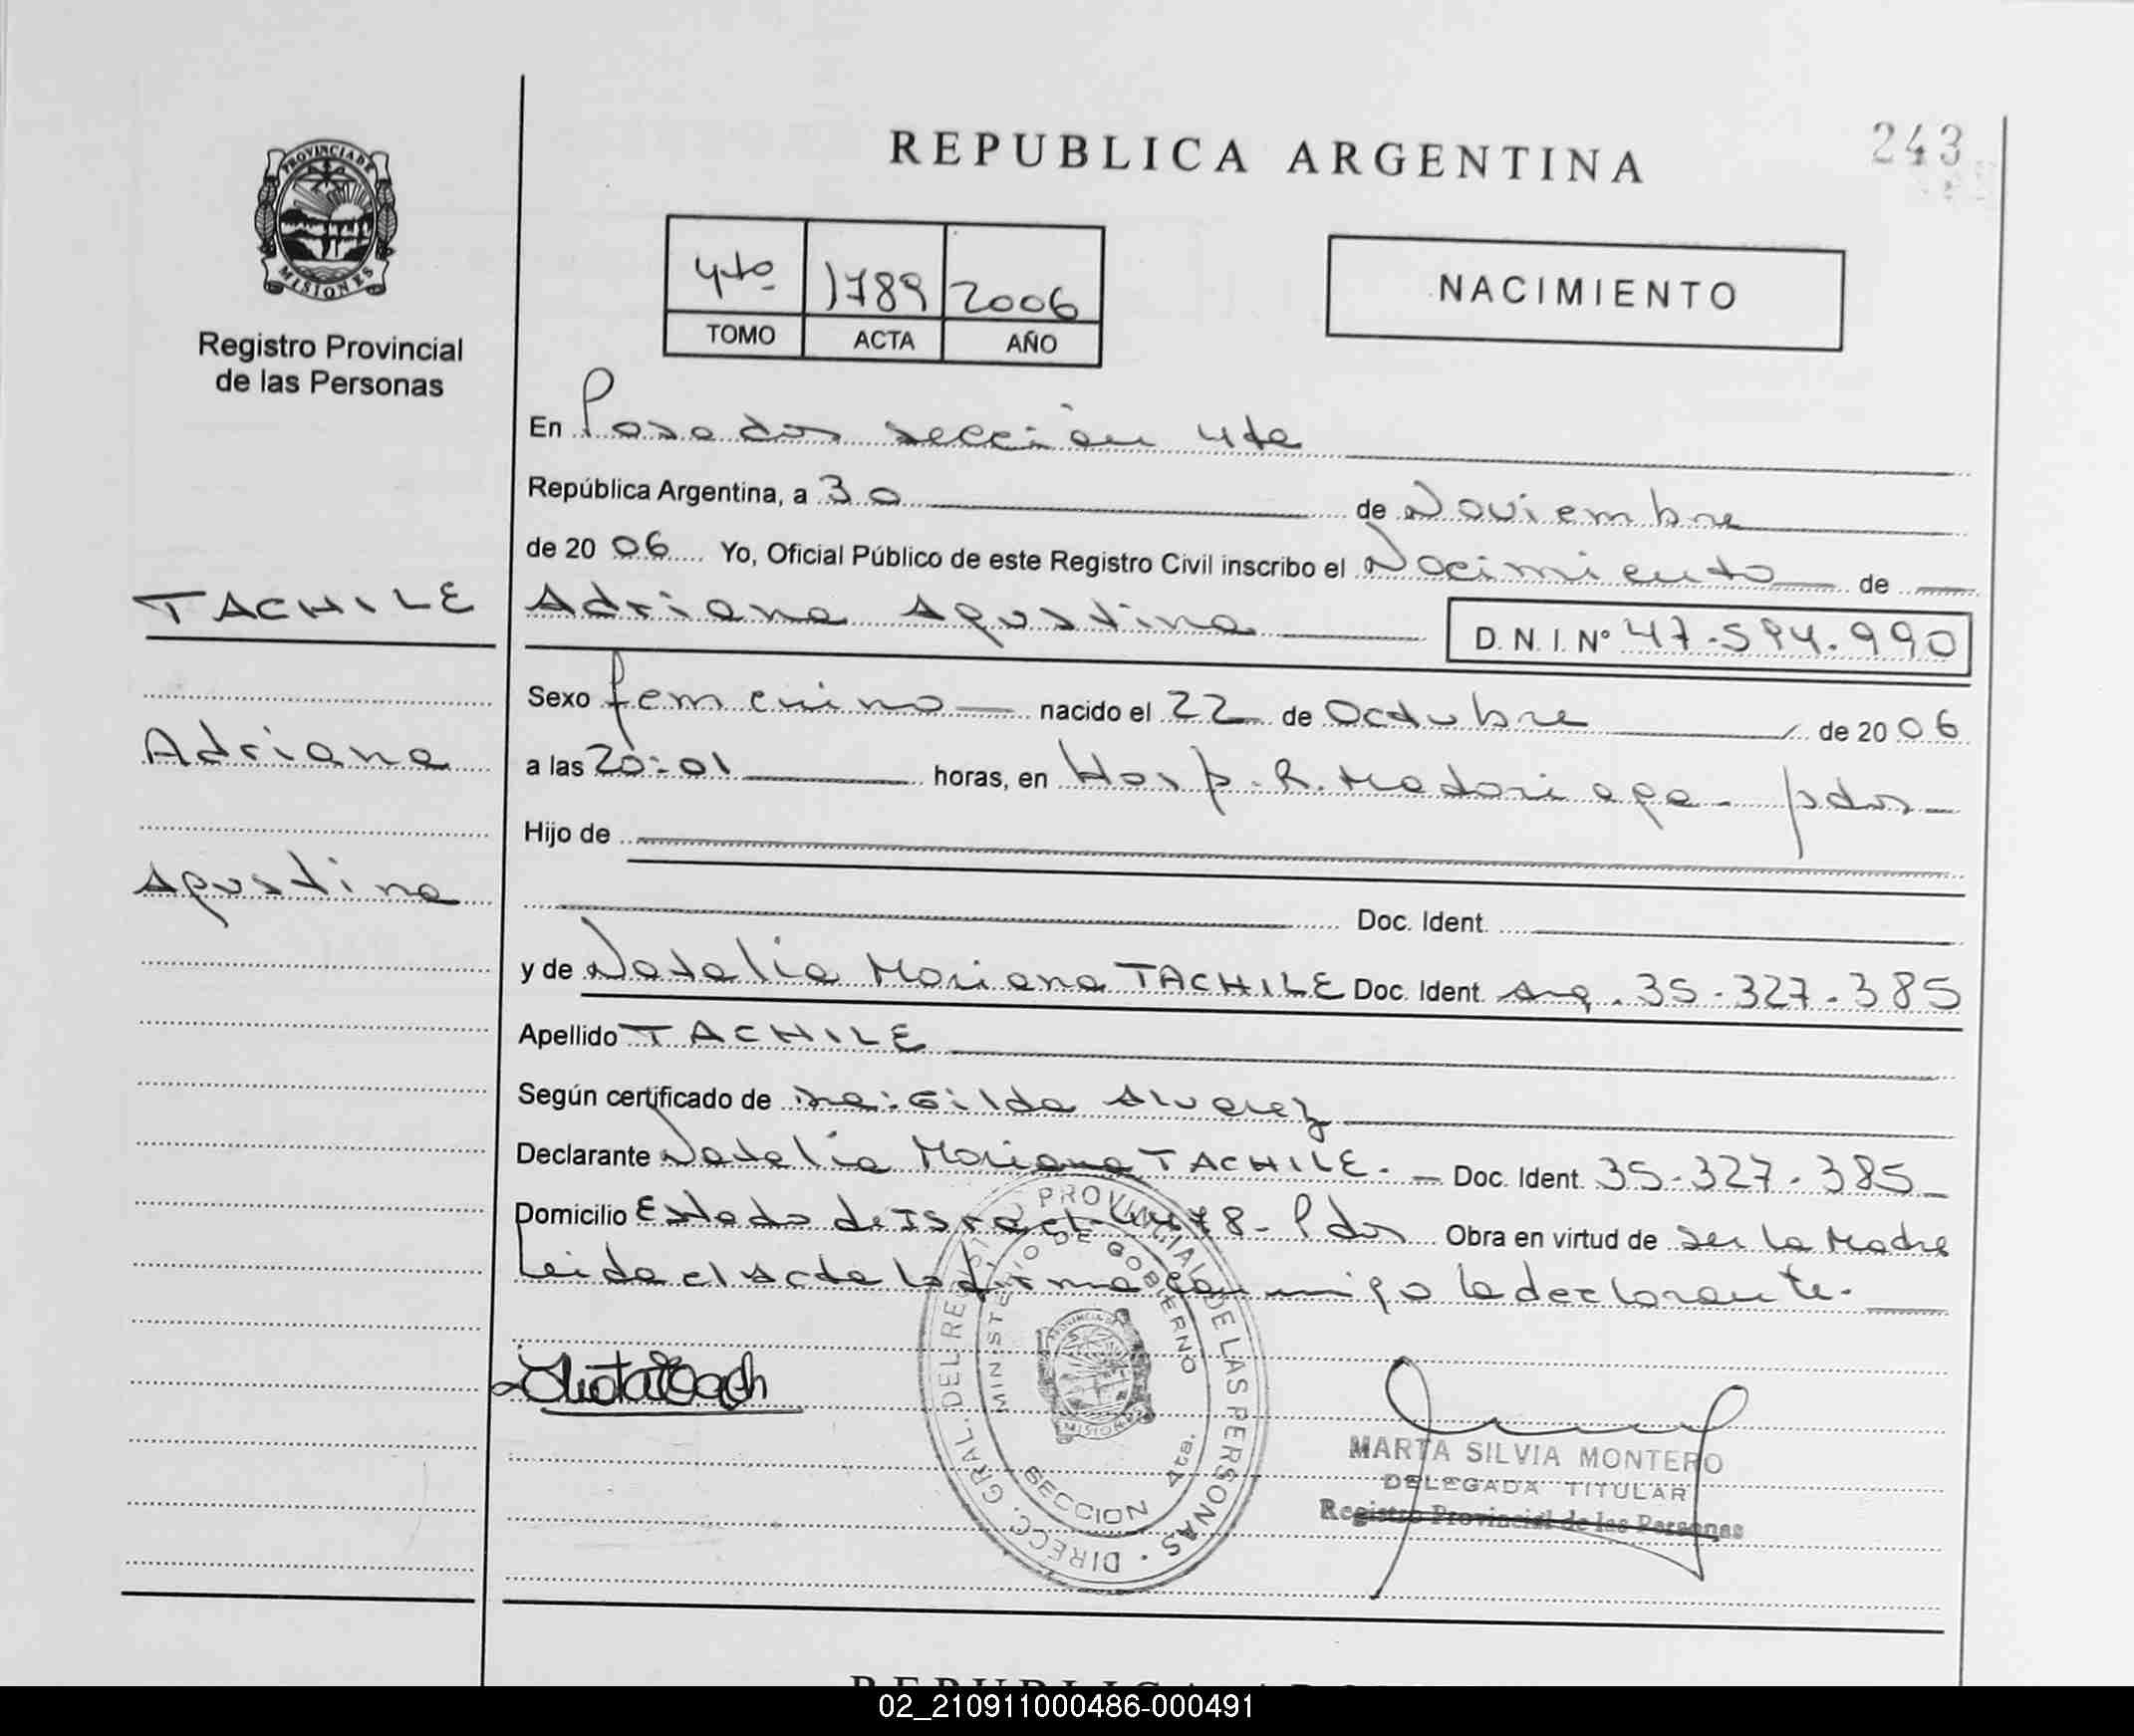 REPUBLICA ARGENTINA
243
PROVINCIA DE
MISIONES
Registro Provincial
de las Personas
4to 1789 2006
TOMO ACTA AÑO
NACIMIENTO
En Posadas sección 4ta
República Argentina, a 30 de Noviembre
de 20 06 Yo, Oficial Público de este Registro Civil inscribo el Nacimiento de
TACHILE
Adriana
Agustina
Adriana Agustina D. N. I. Nº 47.594.990
Sexo femenino nacido el 22 de Octubre de 20 06
a las 20:01 horas, en Hosp. R. Madariaga - pdas
Hijo de
Doc. Ident.
y de Natalia Mariana TACHILE Doc. Ident. Arg. 35.327.385
Apellido TACHILE
Según certificado de Dra: Gilda Alvarez
Declarante Natalia Mariana TACHILE. Doc. Ident. 35.327.385
Domicilio Estado de Israel - Pdas Obra en virtud de ser la Madre
Leida el acta la firma conmigo la declarante.
DIRECC. GRAL. DEL REGISTRO PROVINCIAL DE LAS PERSONAS
MINISTERIO DE GOBIERNO
SECCION 4ta.
MISIONES
MARTA SILVIA MONTERO
DELEGADA TITULAR
Registro Provincial de las Personas
02_210911000486-000491